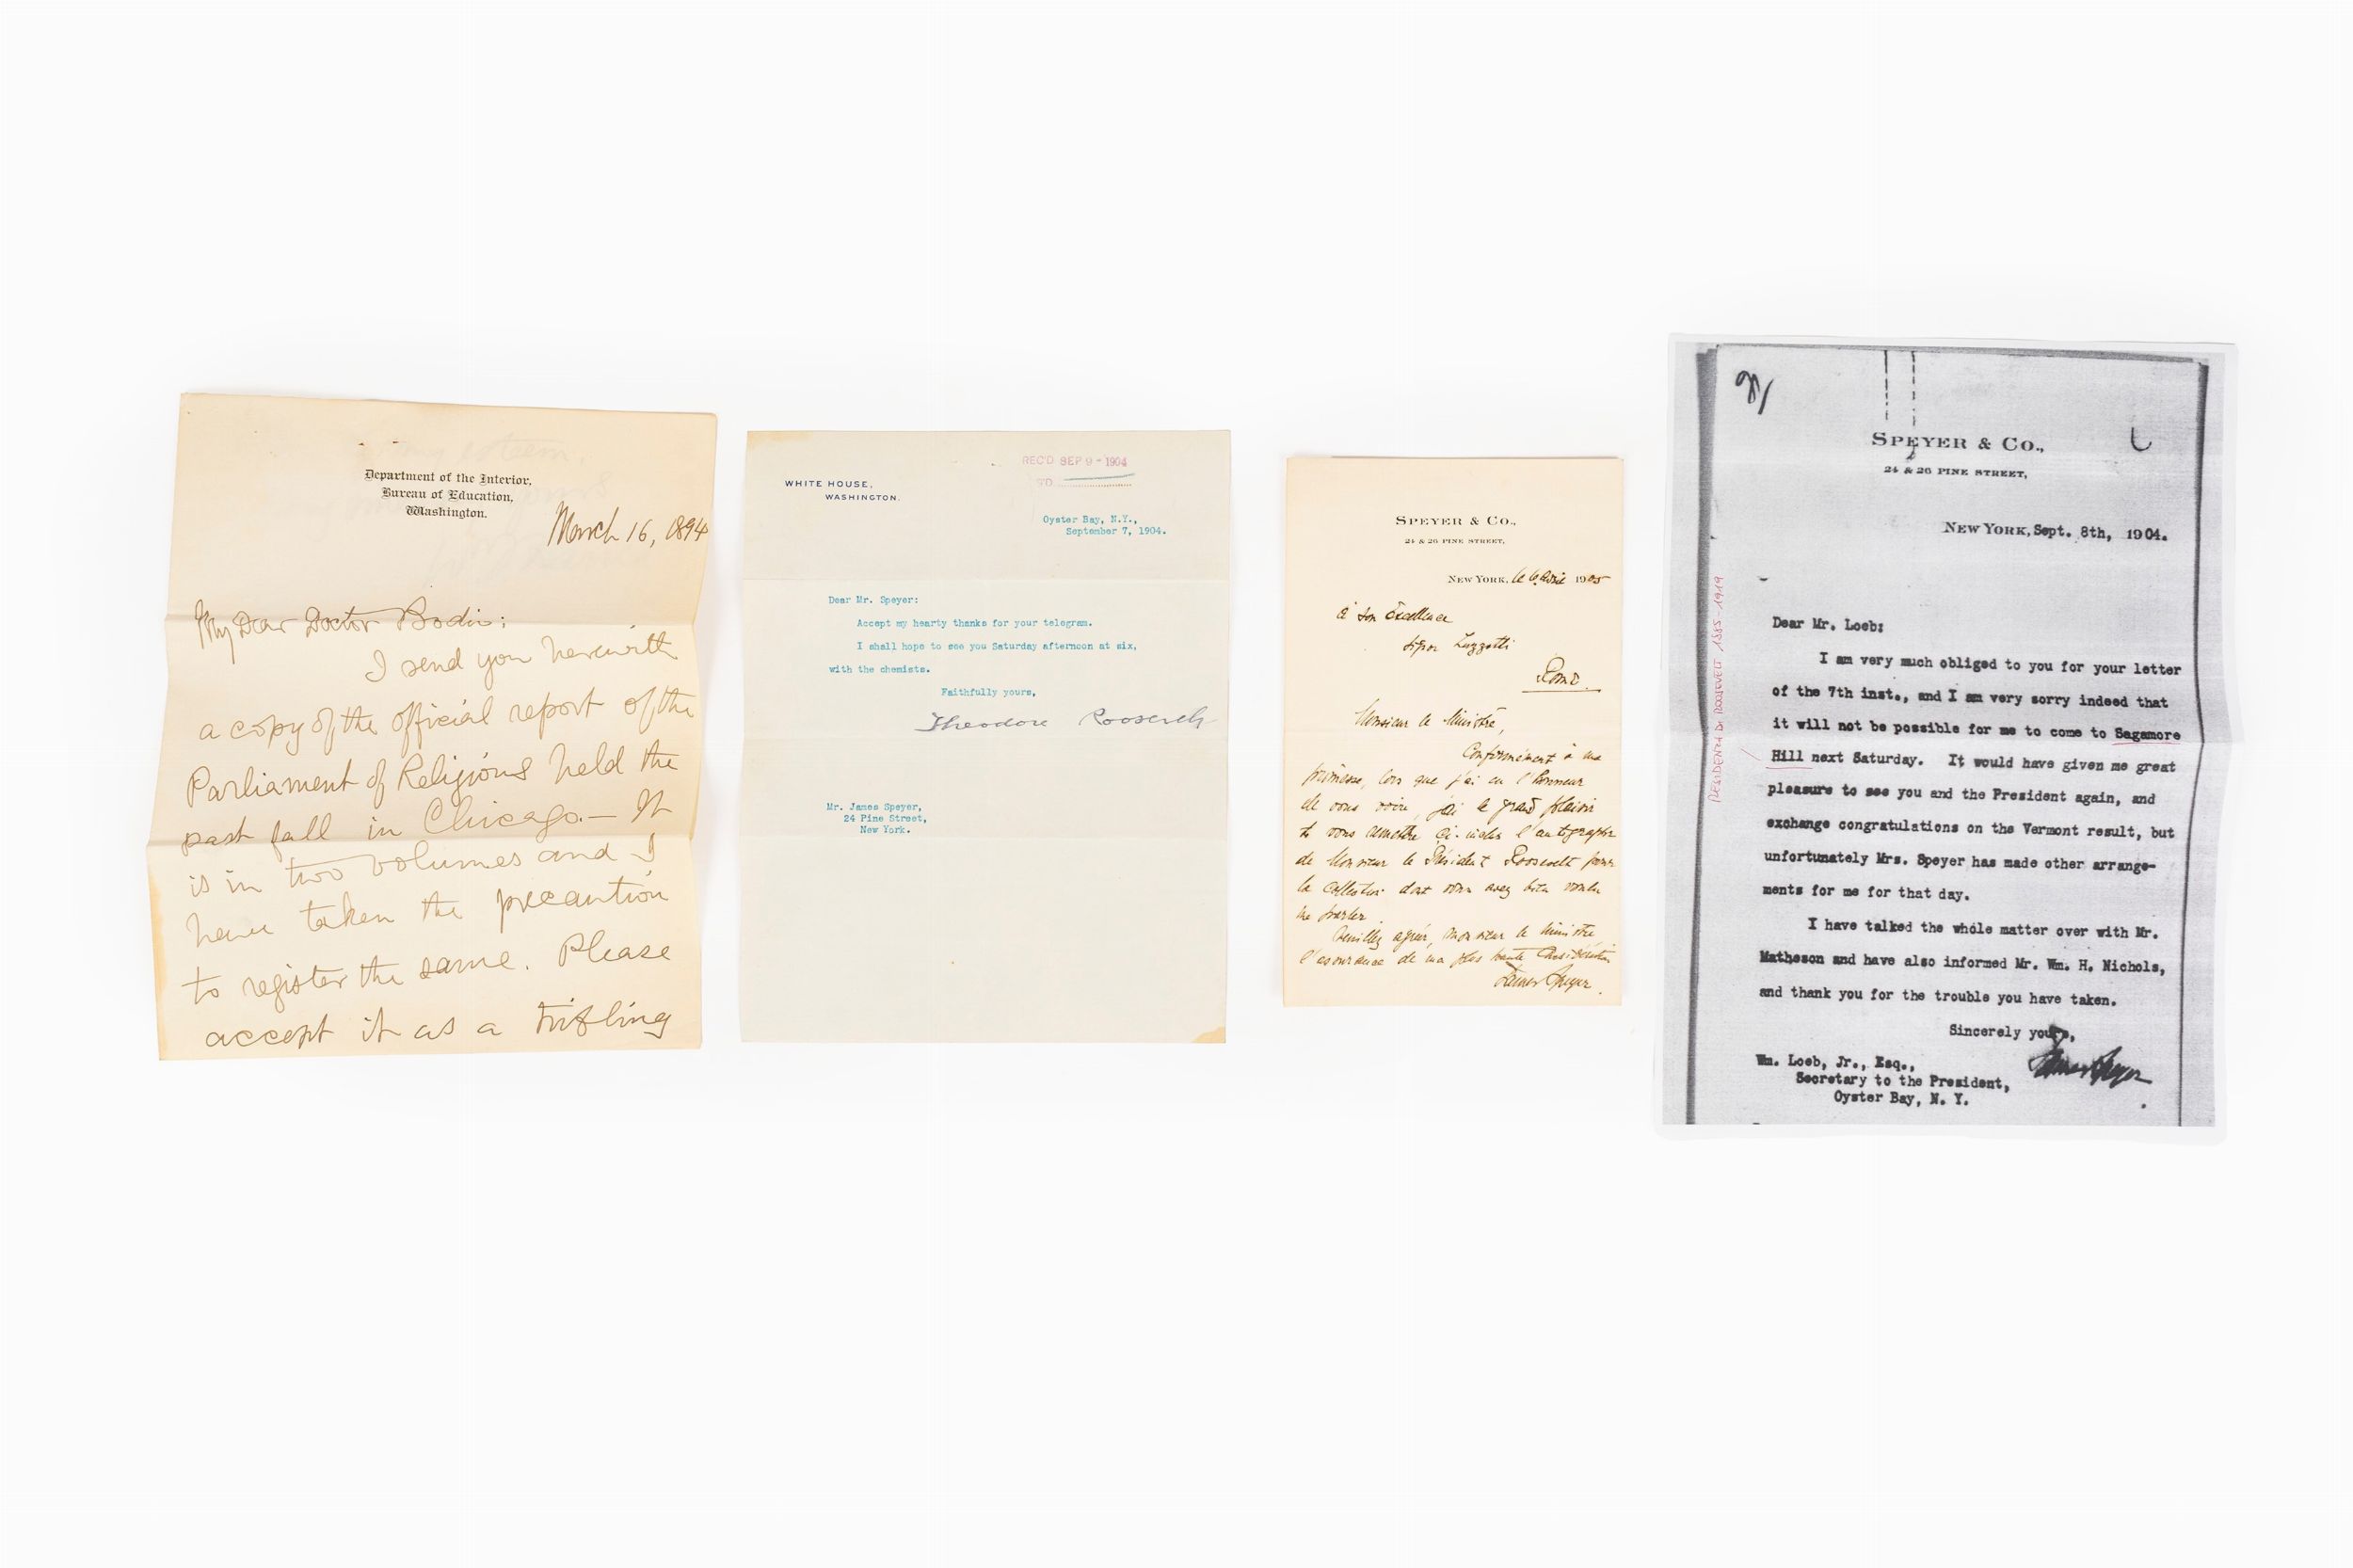 Department of the Interior,
Bureau of Education,
Washington.
March 16, 1894
My Dear Doctor Bodin:
I send you herewith
a copy of the official report of the
Parliament of Religions held the
past fall in Chicago.— It
is in two volumes and I
have taken the precaution
to register the same. Please
accept it as a trifling
WHITE HOUSE,
WASHINGTON.
REC'D SEP 9 - 1904
Oyster Bay, N.Y.,
September 7, 1904.
Dear Mr. Speyer:
Accept my hearty thanks for your telegram.
I shall hope to see you Saturday afternoon at six,
with the chemists.
Faithfully yours,
Theodore Roosevelt
Mr. James Speyer,
24 Pine Street,
New York.
SPEYER & CO.,
24 & 26 PINE STREET,
NEW YORK, le 6 avril 1905
à son Excellence
Signor Luzzatti
Rome.
Monsieur le Ministre,
Conformément à ma
promesse, lors que j'ai eu l'honneur
de vous voir, j'ai le grand plaisir
de vous remettre ci-inclus l'autographe
de Monsieur le Président Roosevelt pour
la collection dont vous avez bien voulu
me parler.
Veuillez agréer, Monsieur le Ministre
l'assurance de ma plus haute considération
James Speyer.
SPEYER & CO.,
24 & 26 PINE STREET,
NEW YORK, Sept. 8th, 1904.
Dear Mr. Loeb:
I am very much obliged to you for your letter
of the 7th inst., and I am very sorry indeed that
it will not be possible for me to come to Sagamore
Hill next Saturday. It would have given me great
pleasure to see you and the President again, and
exchange congratulations on the Vermont result, but
unfortunately Mrs. Speyer has made other arrange-
ments for me for that day.
I have talked the whole matter over with Mr.
Matheson and have also informed Mr. Wm. H. Nichols,
and thank you for the trouble you have taken.
Sincerely yours,
James Speyer
Wm. Loeb, Jr., Esq.,
Secretary to the President,
Oyster Bay, N. Y.
RESIDENZA DI ROOSEVELT 1885-1919